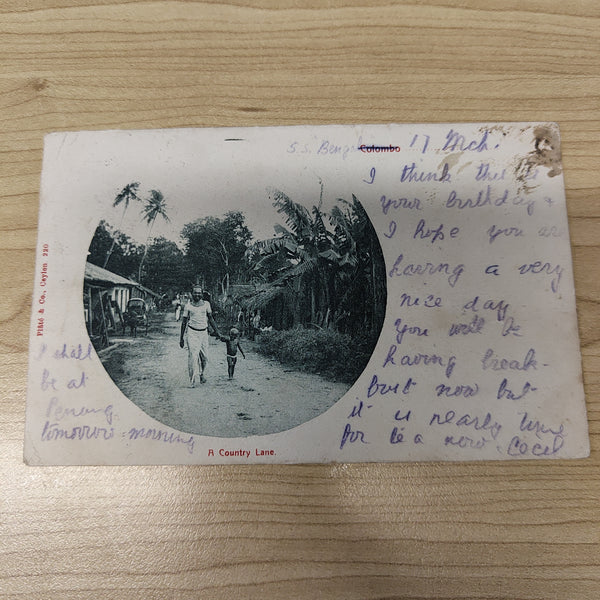 S.S. Beng Colombo 17 Mch.
I think this is
your birthday &
I hope you are
having a very
nice day
You will be
having break-
fast now but
it is nearly time
for
Cecil
I shall
be at
Penang
tomorrow morning
A Country Lane.
Plâté & Co., Ceylon 220